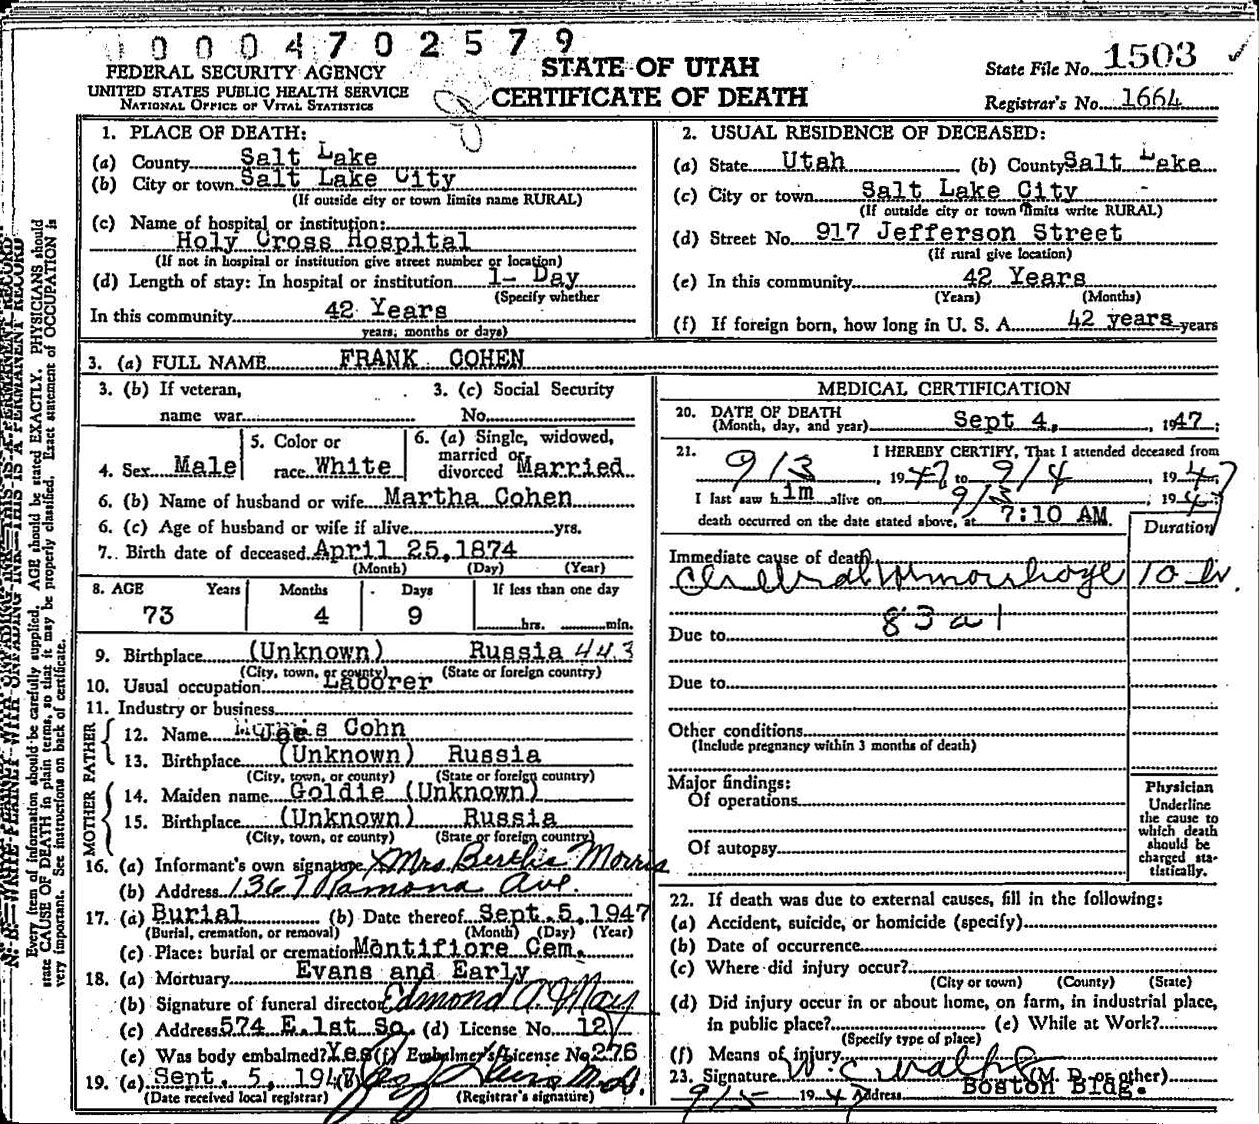 0004702579
FEDERAL SECURITY AGENCY
UNITED STATES PUBLIC HEALTH SERVICE
NATIONAL OFFICE OF VITAL STATISTICS
STATE OF UTAH
CERTIFICATE OF DEATH
State File No. 1503
Registrar's No. 1664
1. PLACE OF DEATH:
(a) County Salt Lake
(b) City or town Salt Lake City
(If outside city or town limits name RURAL)
(c) Name of hospital or institution:
Holy Cross Hospital
(If not in hospital or institution give street number or location)
(d) Length of stay: In hospital or institution 1- Day
(Specify whether
In this community 42 Years
years, months or days)
2. USUAL RESIDENCE OF DECEASED:
(a) State Utah (b) County Salt Lake
(c) City or town Salt Lake City
(If outside city or town limits write RURAL)
(d) Street No. 917 Jefferson Street
(If rural give location)
(e) In this community 42 Years
(Years) (Months)
(f) If foreign born, how long in U. S. A. 42 years years
3. (a) FULL NAME FRANK COHEN
3. (b) If veteran,
name war
3. (c) Social Security
No.
4. Sex Male
5. Color or
race White
6. (a) Single, widowed,
married or
divorced Married
6. (b) Name of husband or wife Martha Cohen
6. (c) Age of husband or wife if alive yrs.
7. Birth date of deceased April 25, 1874
(Month) (Day) (Year)
8. AGE Years Months Days If less than one day
73 4 9 hrs. min.
9. Birthplace (Unknown) Russia 443
(City, town, or county) (State or foreign country)
10. Usual occupation Laborer
11. Industry or business
FATHER
12. Name Cohn
13. Birthplace (Unknown) Russia
(City, town, or county) (State or foreign country)
MOTHER
14. Maiden name Goldie (Unknown)
15. Birthplace (Unknown) Russia
(City, town, or county) (State or foreign country)
16. (a) Informant's own signature Mrs. Bertha Morris
(b) Address 1367 Ramona Ave.
17. (a) Burial (b) Date thereof Sept. 5, 1947
(Burial, cremation, or removal) (Month) (Day) (Year)
(c) Place: burial or cremation Montifiore Cem.
18. (a) Mortuary Evans and Early
(b) Signature of funeral director Edmond A.
(c) Address 574 E. 1st So. (d) License No. 127
(e) Was body embalmed? Yes (f) Embalmer's License No. 276
19. (a) Sept. 5, 1947 (b) M.D.
(Date received local registrar) (Registrar's signature)
MEDICAL CERTIFICATION
20. DATE OF DEATH
(Month, day, and year) Sept 4, , 1947;
21. I HEREBY CERTIFY, That I attended deceased from
9/3, 1947 to 9/4, 1947
I last saw him alive on 9/3, 1947
death occurred on the date stated above, at 7:10 AM.
Duration
Immediate cause of death
Cerebral Hemorrhage 10 hr.
83a1
Due to
Due to
Other conditions
(Include pregnancy within 3 months of death)
Major findings:
Of operations
Of autopsy
Physician
Underline
the cause to
which death
should be
charged sta-
tistically.
22. If death was due to external causes, fill in the following:
(a) Accident, suicide, or homicide (specify)
(b) Date of occurrence
(c) Where did injury occur?
(City or town) (County) (State)
(d) Did injury occur in or about home, on farm, in industrial place,
in public place? (e) While at Work?
(Specify type of place)
(f) Means of injury
23. Signature W. C. (M. D. or other)
9/5 1947 Address Boston Bldg.
Every item of information should be carefully supplied. AGE should be stated EXACTLY. PHYSICIANS should
state CAUSE OF DEATH in plain terms, so that it may be properly classified. Exact statement of OCCUPATION is
very important. See instructions on back of certificate.